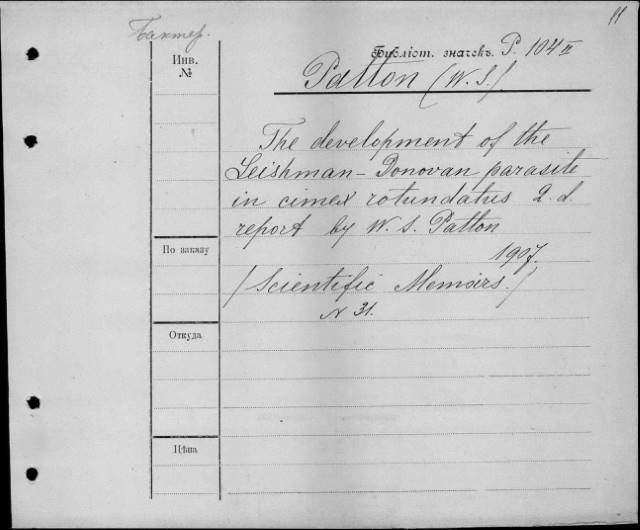 11
Бактер.
Библіот. значекъ. P. 104 II
Инв.
№
Patton (W. S.).
The development of the
Leishman-Donovan parasite
in cimex rotundatus 2. d.
report by W. S. Patton
По заказу
1907.
/Scientific Memoirs./
N 31.
Откуда
Цѣна